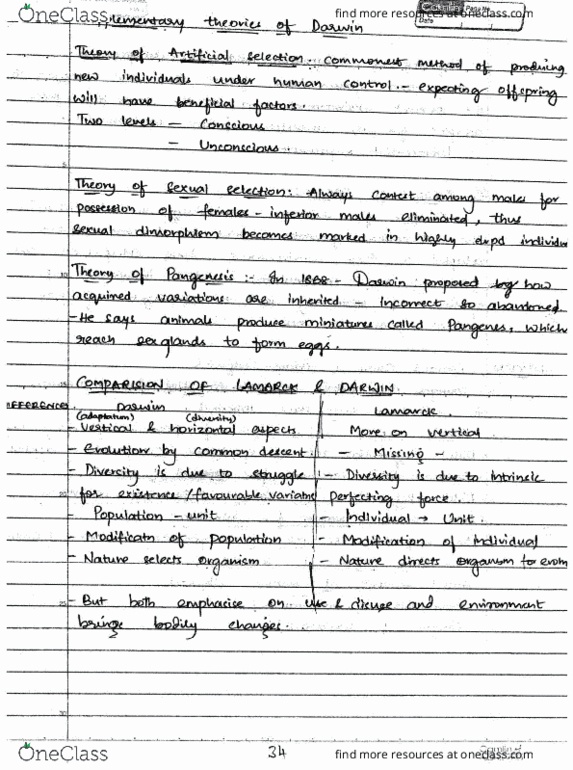 OneClass
find more resources at oneclass.com
plementary theories of Darwin
Date
Theory of Artificial selection. commonest method of producing
new individuals under human control. - expecting offspring
will have beneficial factors.
Two levels - Conscious
- Unconscious.
Theory of sexual selection: Always contest among males for
possession of females - inferior males eliminated, thus
sexual dimorphism becomes marked in highly devpd individu
Theory of Pangenesis :- In 1868 - Darwin proposed how
acquired variations are inherited - incorrect so abandoned.
- He says animals produce miniatures called Pangenes, which
reach sex glands to form eggs.
COMPARISION OF LAMARCK & DARWIN
IFFERENCES
Darwin
Lamarck.
(adaptatum) (diversity)
- Vertical & horizontal aspects
More on vertical
- Evolution by common descent.
- Missing -
- Divercity is due to struggle
- Diversity is due to intrinsic
for existence / favourable variatns
perfecting force.
Population - unit
- Individual → Unit.
- Modificatn of population
- Modification of individual
- Nature selects organism
- Nature directs organism to evolve
- But both emphasise on use & disuse and environment
brings bodily changes.
34
OneClass
find more resources at oneclass.com